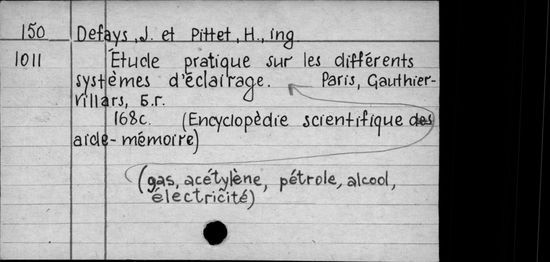 150 Defays, J. et Pittet, H., ing
1011 Étude pratique sur les différents
systèmes d'éclairage. Paris, Gauthier-
Villars, б.г.
168с. (Encyclopèdie scientifique des
aide-mémoire)
(gas, acétylène, pétrole, alcool,
électricité)